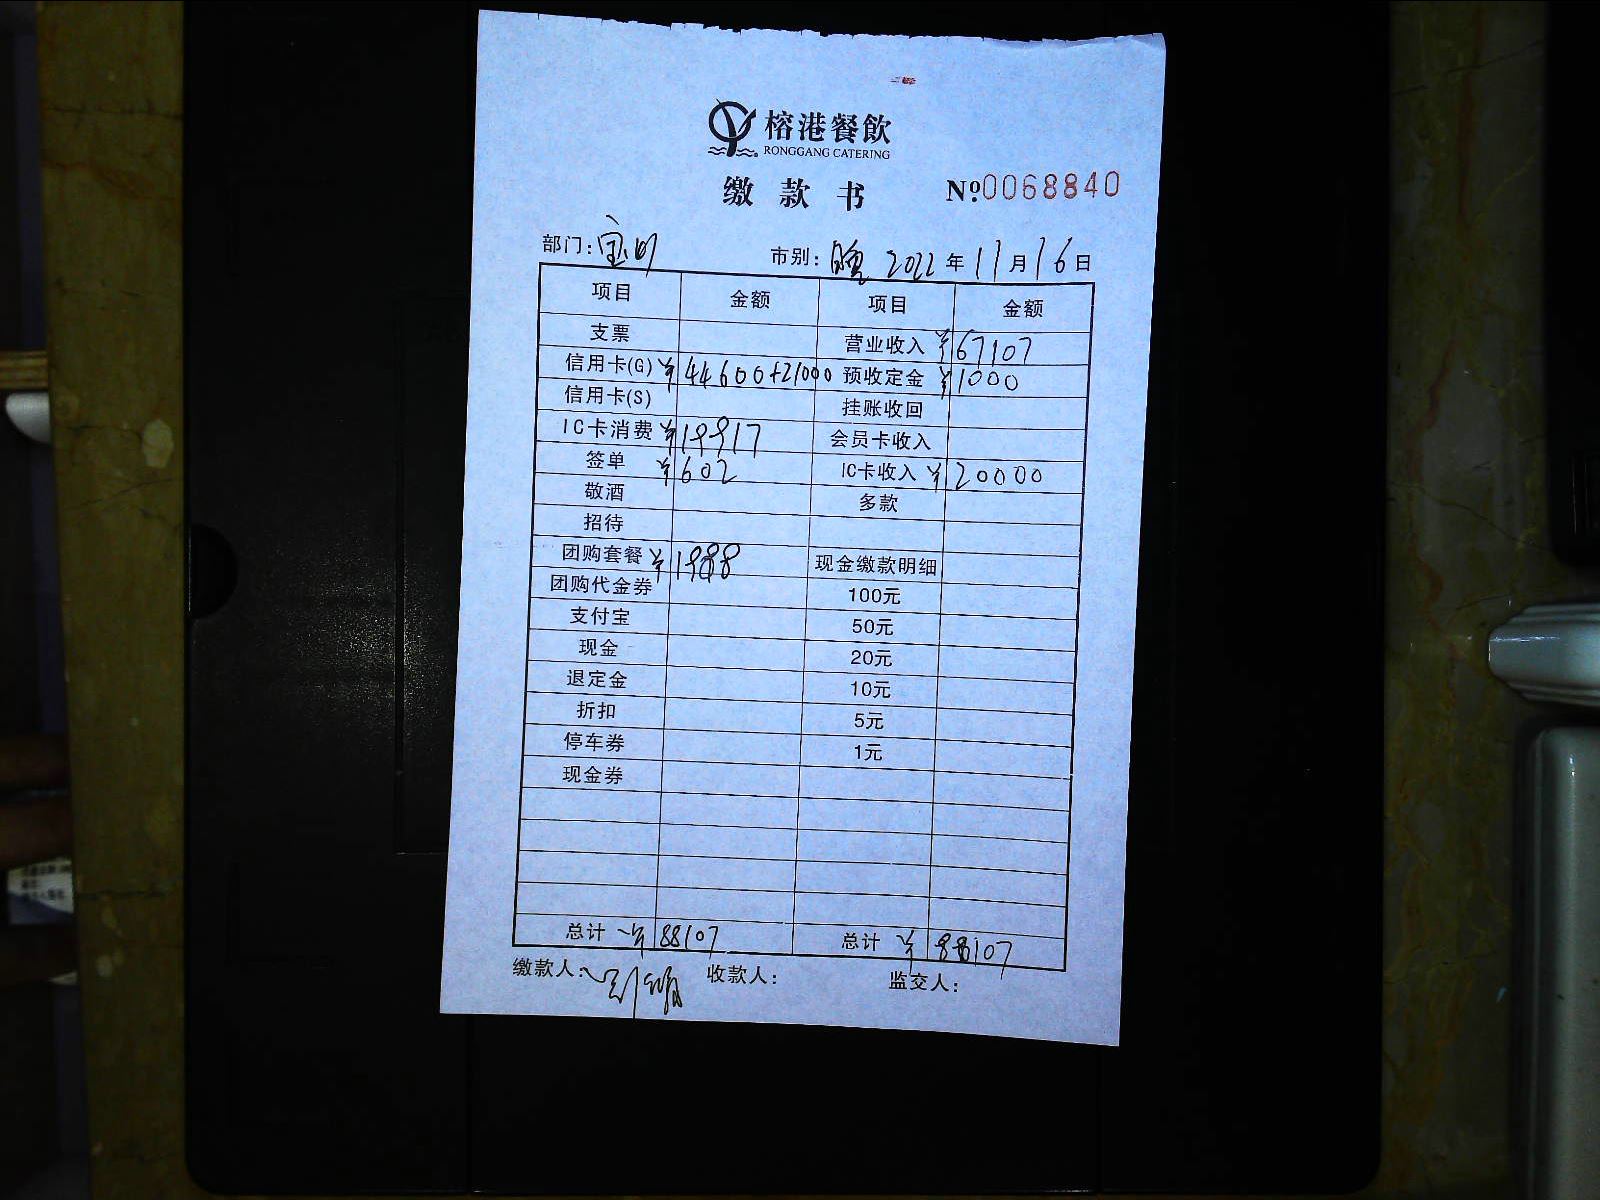 榕港餐飲
RONGGANG CATERING
缴款书 No.0068840
部门: 市别: 2022年11月16日
项目 金额 项目 金额
支票 营业收入 ¥67107
信用卡(G) ¥44600+21000 预收定金 ¥1000
信用卡(S) 挂账收回
IC卡消费 ¥19917 会员卡收入
签单 ¥602 IC卡收入 ¥20000
敬酒 多款
招待
团购套餐 ¥1988 现金缴款明细
团购代金券 100元
支付宝 50元
现金 20元
退定金 10元
折扣 5元
停车券 1元
现金券
总计 ¥88107 总计 ¥88107
缴款人: 收款人: 监交人: